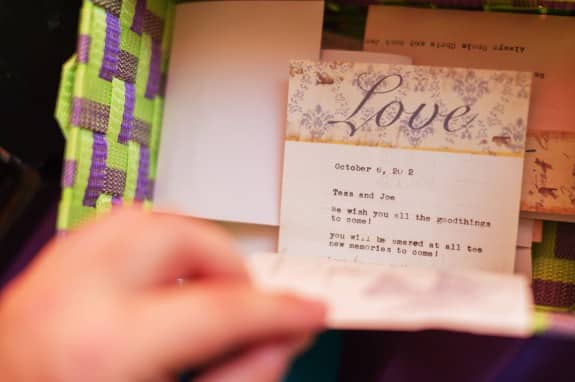 Always Uncle Chris and Aunt
Love
October 6, 20 2
Tess and Joe
We wish you all the goodthings
to come!
you will be amazed at all the
new memories to come!